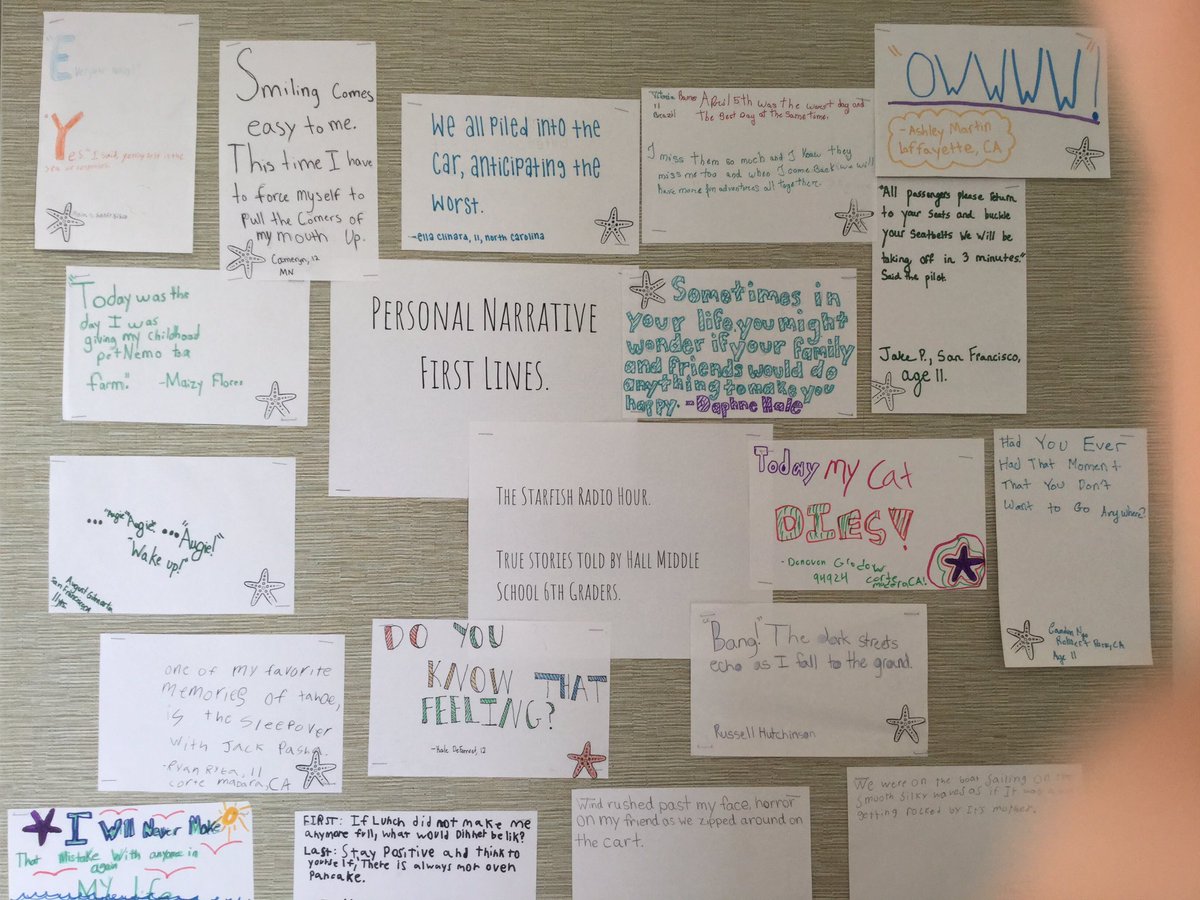 "E
Yes." I said,
Smiling Comes
easy to me.
This time I have
to force myself to
pull the Corners of
my mouth up.
Cameryn, 12
MN
We all piled into the
car, anticipating the
worst.
-ella clinard, 11, north carolina
11
Brazil
April 15th was the worst day and
The Best Day at the Same time.
I miss them so much and I know they
miss me too and when I come back we will
have more fun adventures all together.
"OWWWW!
-Ashley Martin
Laffayette, CA
"All passengers please return
to your seats and buckle
your seatbelts we will be
taking off in 3 minutes."
Said the pilot.
Jake P., San Francisco,
age 11.
"Today was the
day I was
giving my childhood
pet Nemo to a
farm." -Maizy Flores
Personal Narrative
First Lines.
Sometimes in
your life, you might
wonder if your family
and friends would do
anything to make you
happy. -Daphne Hale
The Starfish Radio Hour.
True stories told by Hall Middle
School 6th Graders.
Today My Cat
DIES!
94924 corte
madera, CA!
Had You Ever
Had That Moment
That You Don't
Want to Go Anywhere?
Age 11
..."Augie" Augie ..."Augie!"
"Wake up!"
San Francisco
one of my favorite
memories of tahoe,
is the sleepover
with Jack Pasha.
-Ryan Ryta, 11
corte madara, CA
DO YOU
KNOW THAT
FEELING?
"Bang!" The dark streets
echo as I fall to the ground.
Russell Hutchinson
I Will Never Make
That Mistake With anyone in
again
MY life
FIRST: If Lunch did not make me
anymore full, what would Dinner be lik?
Last: Stay Positive and think to
yourself, There is always mor oven
Pancake.
Wind rushed past my face, horror
on my friend as we zipped around on
the cart.
We were on the boat sailing on the
smooth silky waves as if It was a
getting rocked by It's mother.